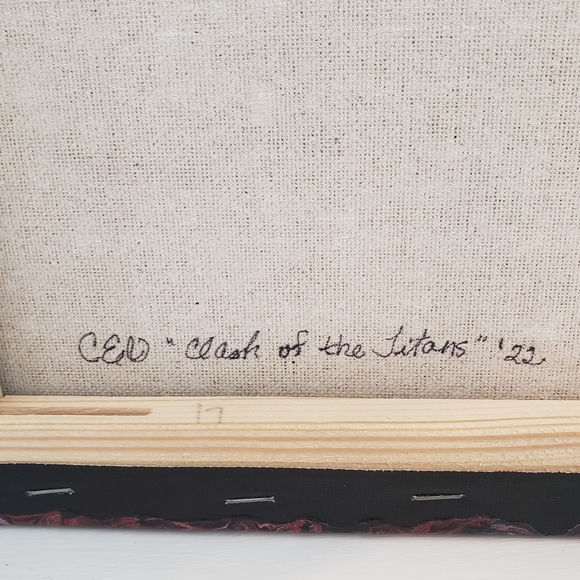 CED "Clash of the Titans" '22
17